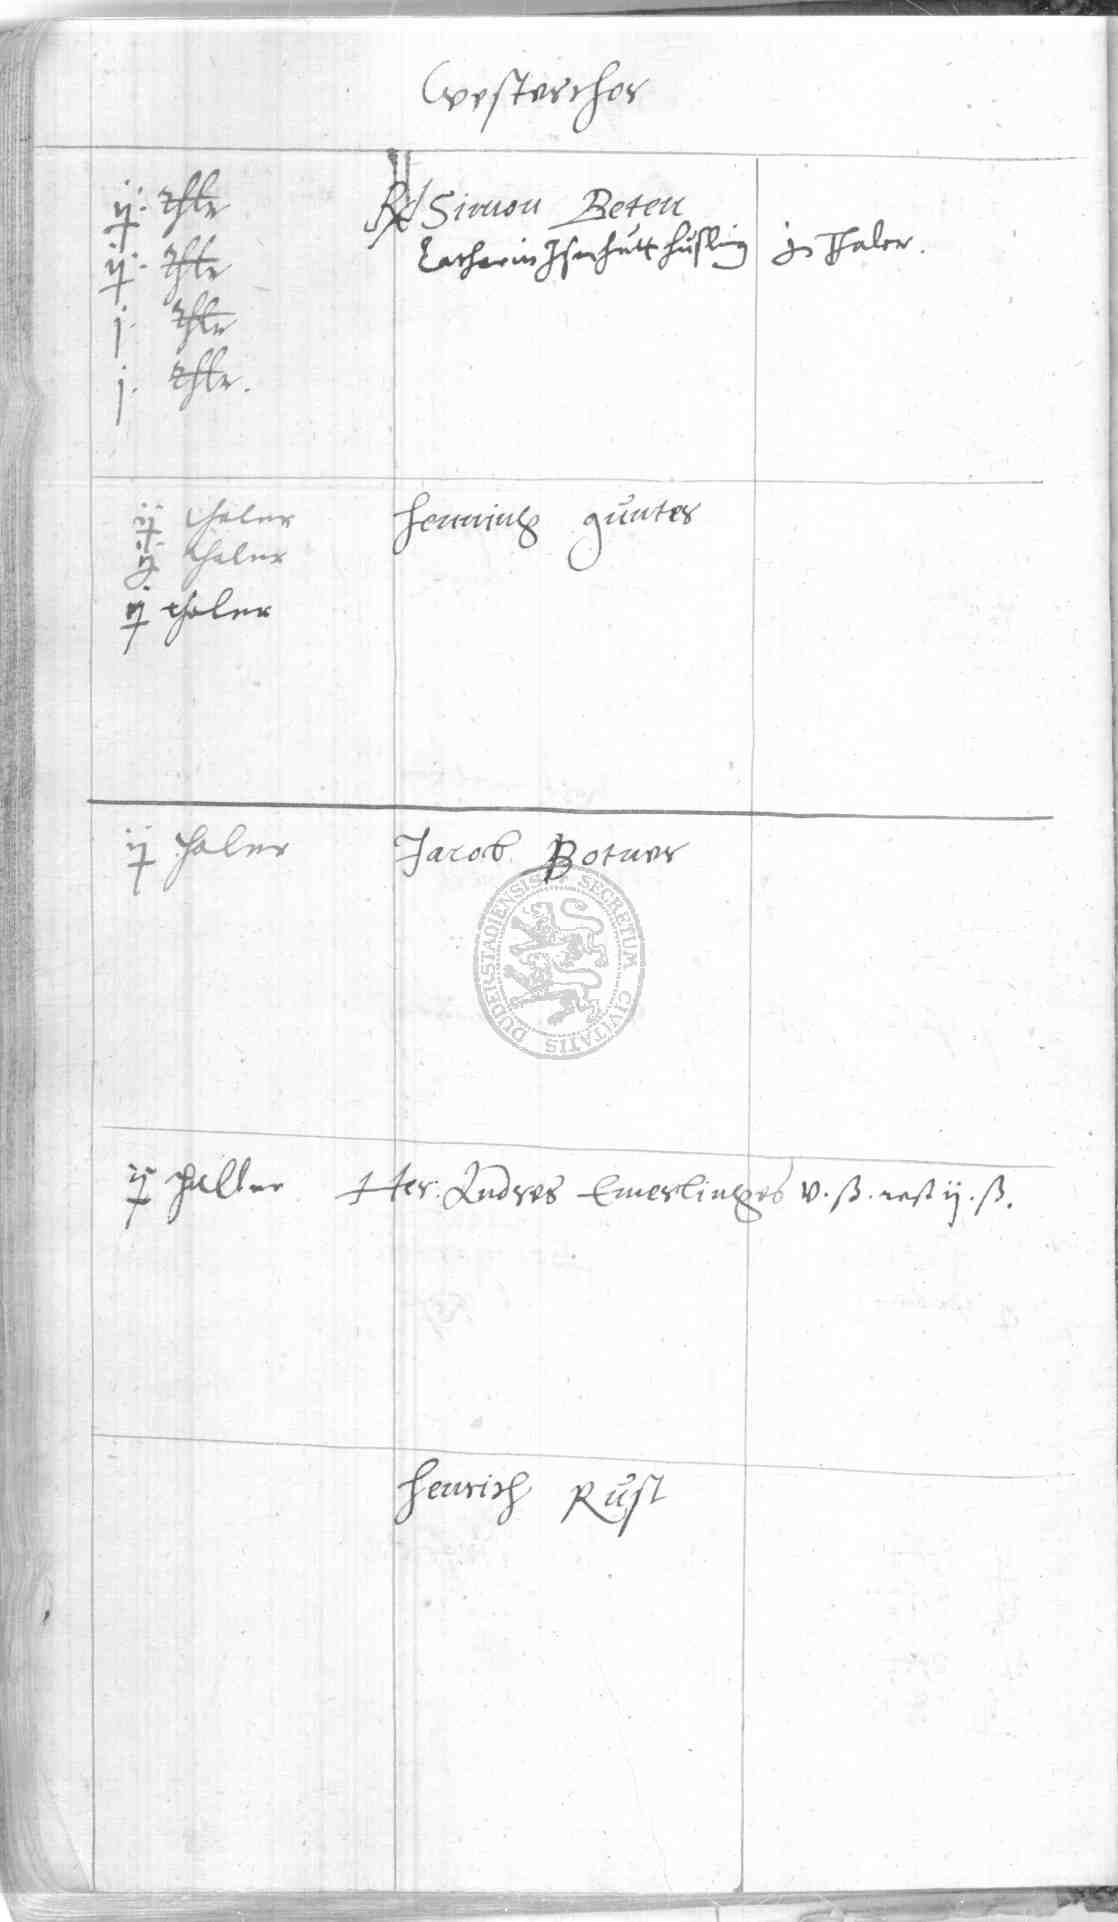 Westerthor
ij. thlr Simon Beten
ij. thlr Catharin Hüsling j thaler.
j. thlr
j. thlr.
ij thaler Henning Gunter
ij thaler
ij thaler
ij thaler Jacob Botner
ij thaller Her. Andres Emerlinges v. ß. rest ij. ß.
Henrich Rust
SECRETUM CIVITATIS DUDERSTADIENSIS